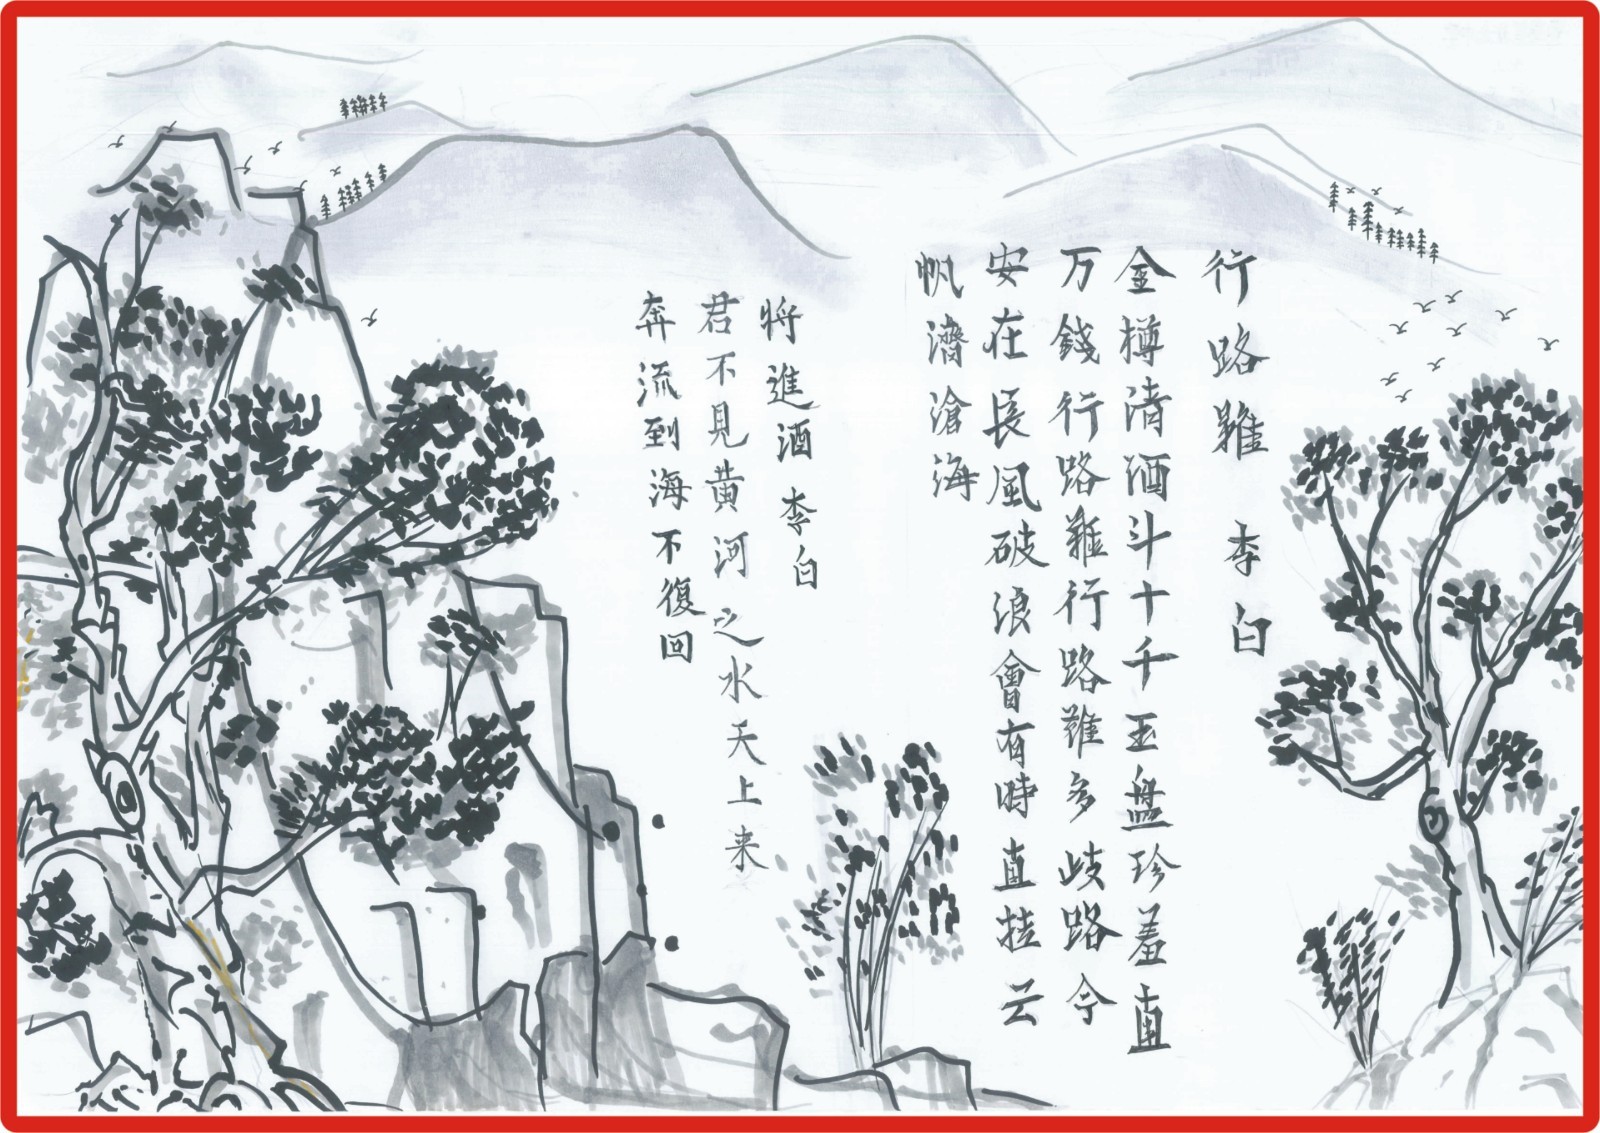 行路難 李白
金樽清酒斗十千玉盤珍羞直
万錢行路難行路難多歧路今
安在長風破浪會有時直挂云
帆濟滄海
将進酒 李白
君不見黄河之水天上来
奔流到海不復回